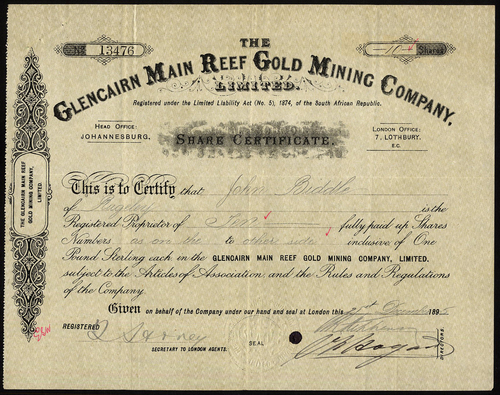 THE
GLENCAIRN MAIN REEF GOLD MINING COMPANY,
LIMITED.
No 13476
—10— Shares
Registered under the Limited Liability Act (No. 5), 1874, of the South African Republic.
HEAD OFFICE:
JOHANNESBURG.
LONDON OFFICE:
7, LOTHBURY.
E.C.
SHARE CERTIFICATE.
THE GLENCAIRN MAIN REEF
GOLD MINING COMPANY,
LIMITED.
This is to Certify that John Biddle
of is the
Registered Proprietor of Ten fully paid up Shares
Numbers as on the to other side inclusive of One
Pound Sterling each in the GLENCAIRN MAIN REEF GOLD MINING COMPANY, LIMITED.
subject to the Articles of Association and the Rules and Regulations
of the Company.
Given on behalf of the Company under our hand and seal at London this 21st December 189
REGISTERED
SECRETARY TO LONDON AGENTS.
SEAL
DIRECTORS.